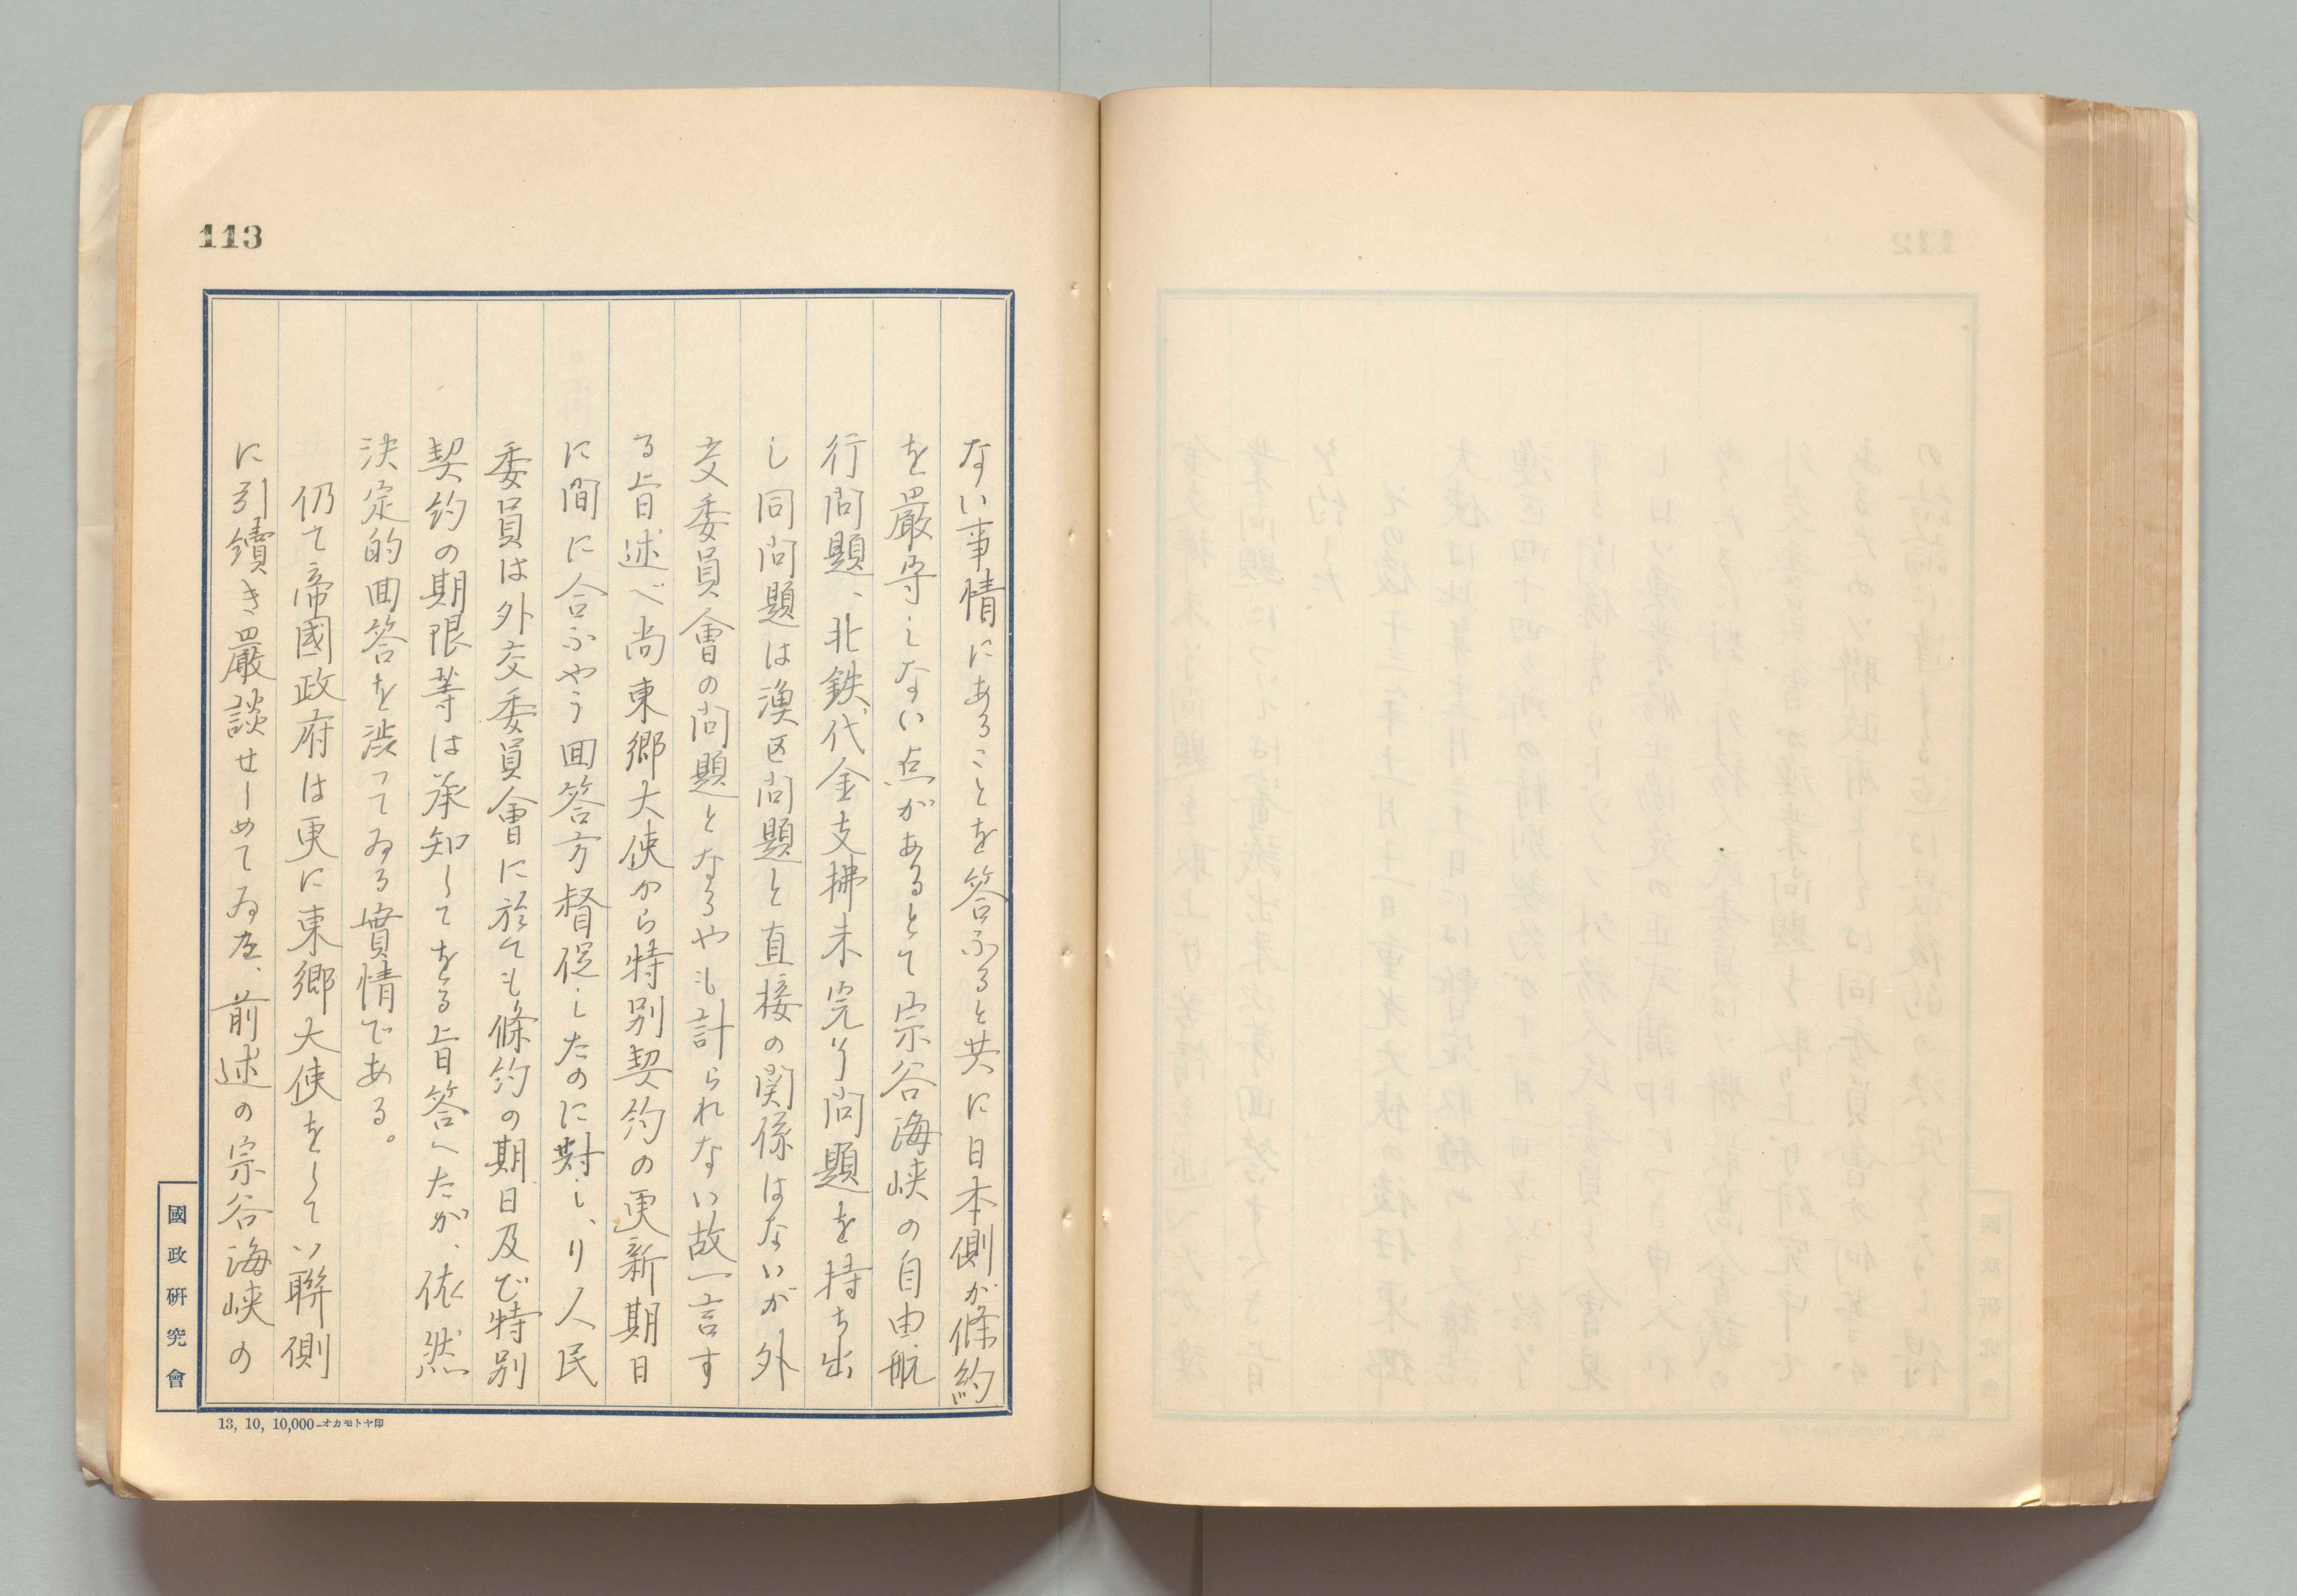 113
ない事情にあることを答ふると共に日本側が條約
を嚴守しない点があるとて宗谷海峡の自由航
行問題、北鉄代金支拂未完了問題を持ち出
し同問題は漁区問題と直接の関係はないが外
交委員會の問題となるやも計られない故一言す
る旨述べ尚東郷大使から特別契約の更新期日
に間に合ふやう回答方督促したのに對し、リ人民
委員は外交委員會に於ても條約の期日及び特別
契約の期限等は承知してをる旨答へたが、依然
決定的回答を渋つてゐる實情である。
仍て帝國政府は更に東郷大使をしてソ聯側
に引續き嚴談せしめてゐる、前述の宗谷海峡の
國政研究會
13, 10, 10,000-オカモトヤ印